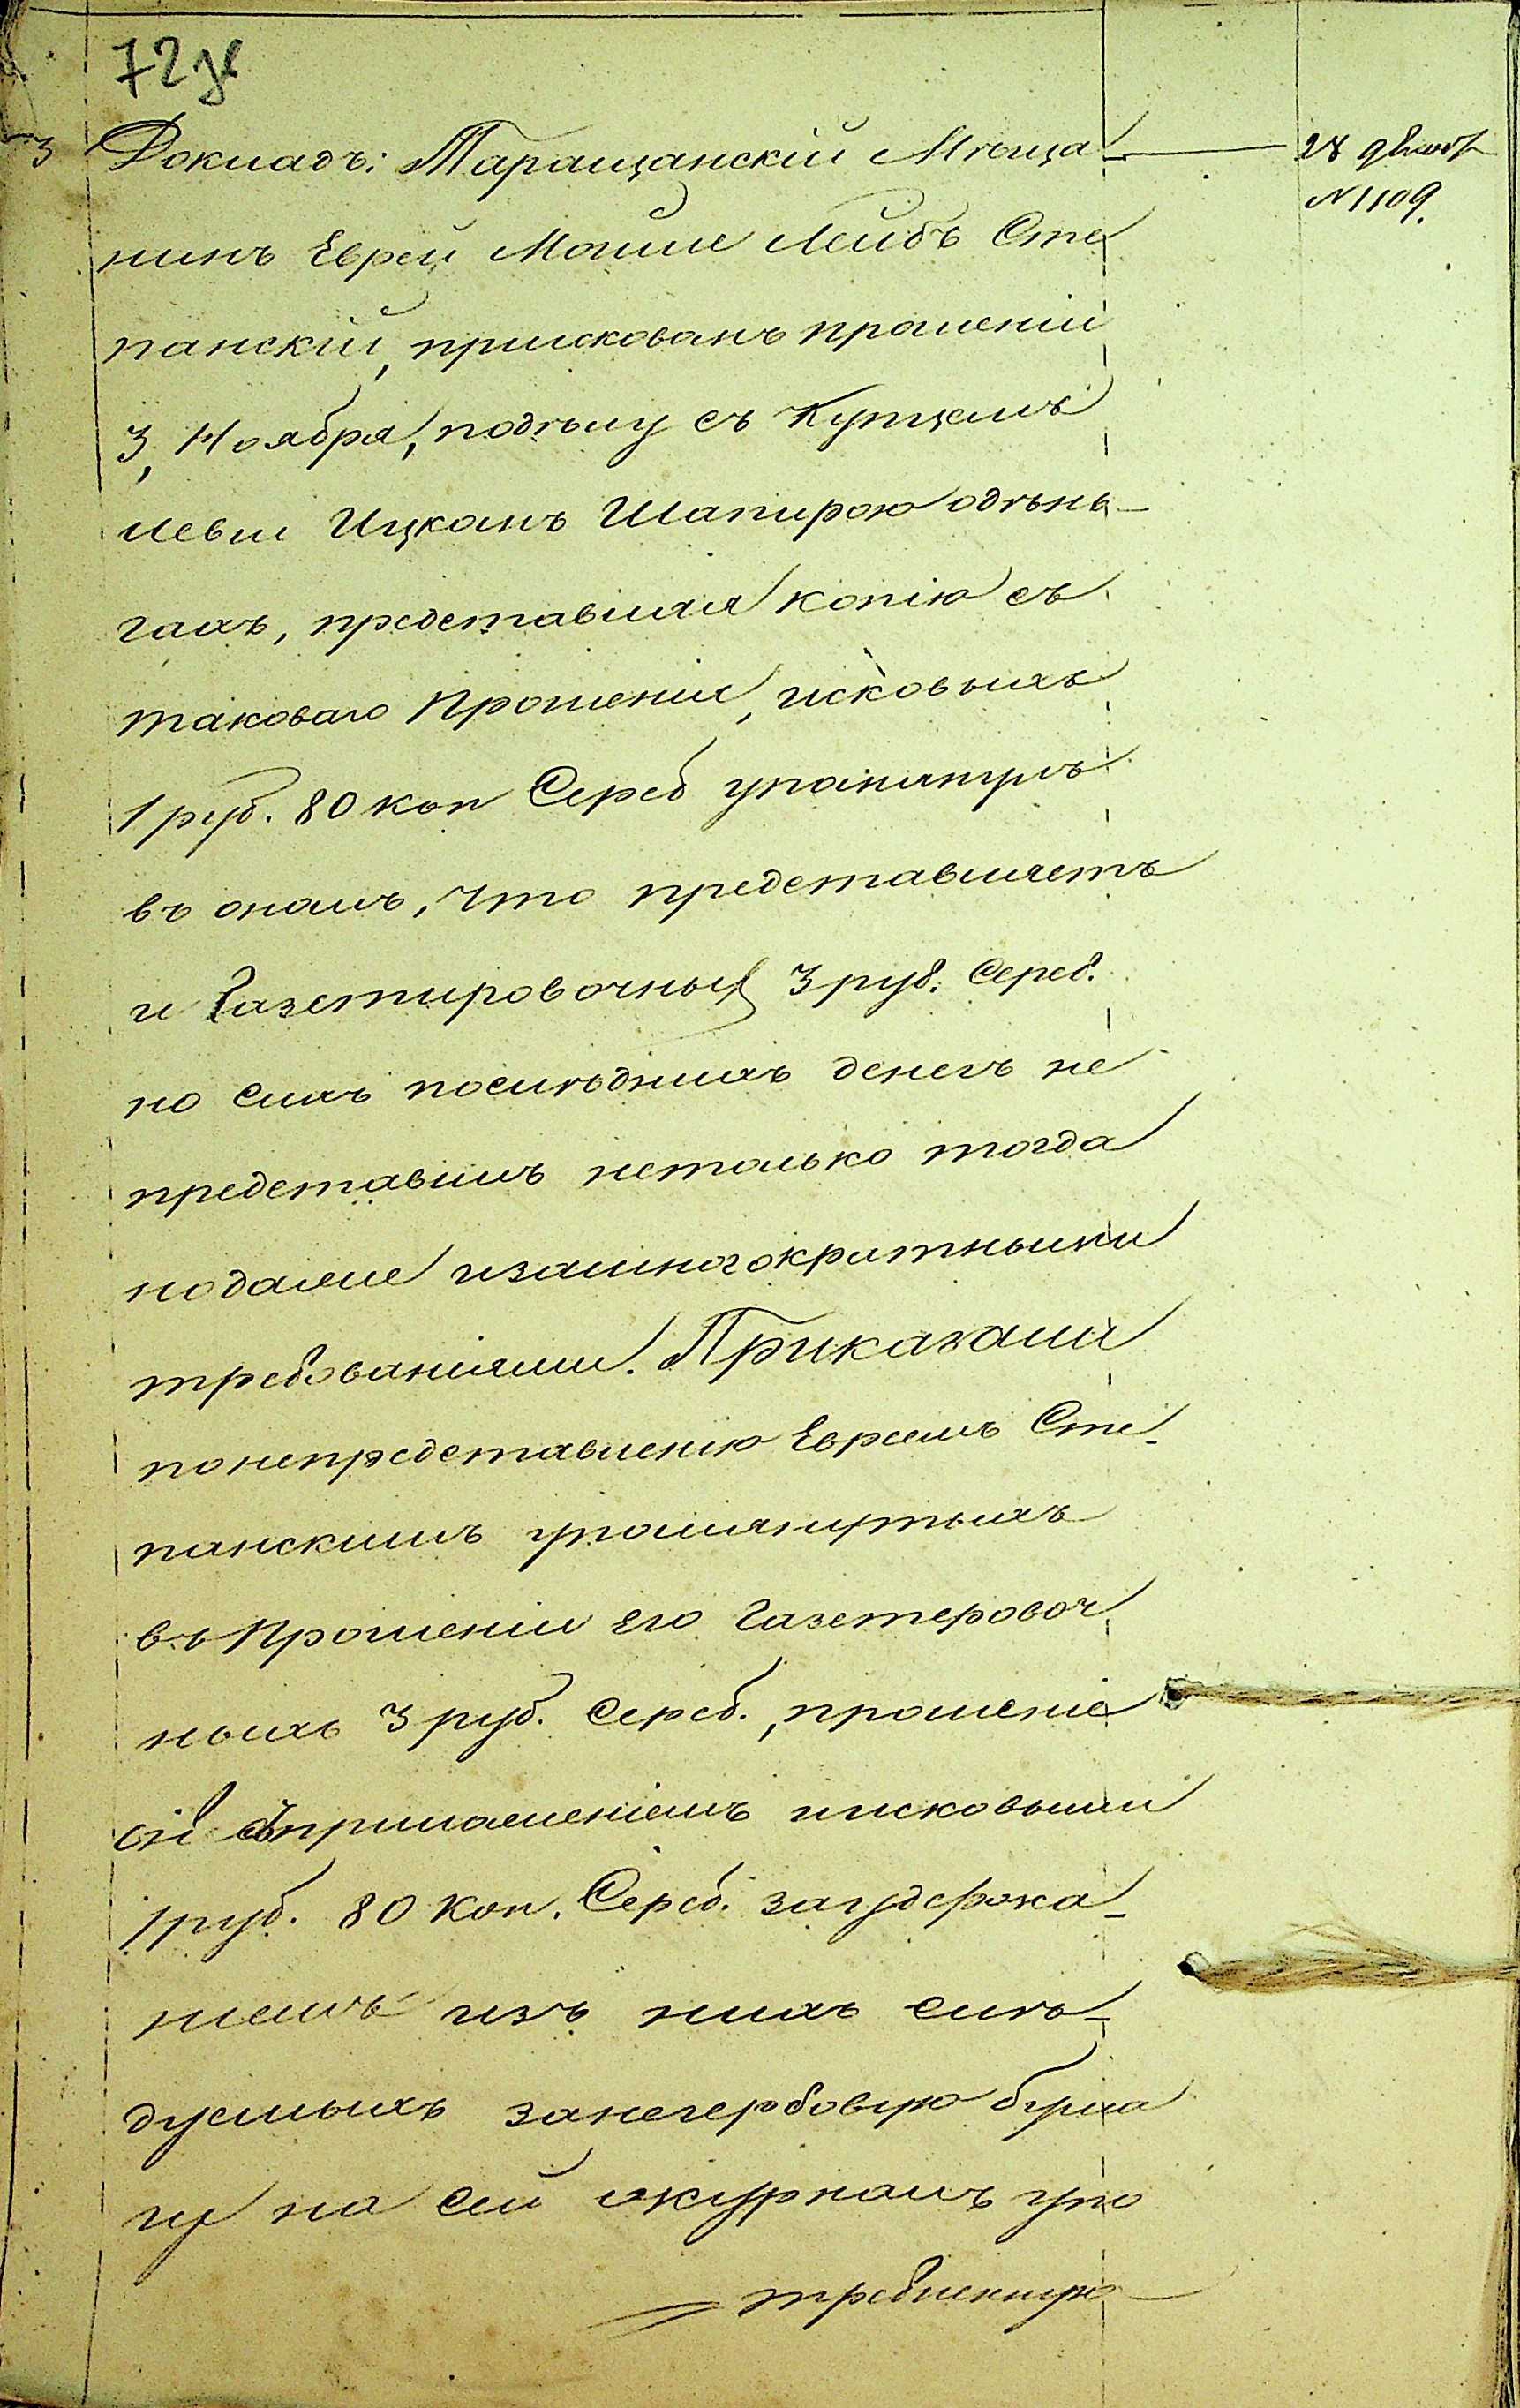 72 зв
3 Докладъ: Таращанскій Мѣща
28 декабр
№ 1109.
нинъ Еврей Мошко Лейбъ Сте
панскій, приисковомъ прошеніи
3, Ноября, подѣлу съ Купцемъ
Леви Ицкомъ Шапирою одѣнь-
гахъ, представляя копію съ
таковаго Прошенія, исковыхъ
1 руб. 80 коп Сереб упомянулъ
въ ономъ, что представляетъ
и Газетировочныя 3 руб. Сереб.
но сихъ послѣднихъ денегъ не
представилъ нетолько тогда
нодалее изамногократными
требованіями. Приказали
понепредставленію Евреемъ Сте-
панскимъ упомянутыхъ
въ Прошеніи его Газетеровоч
ныхъ 3 руб. Сереб., прошеніе
сіе съприложеніемъ иисковыми
1 руб. 80 Коп. Сереб. заудержа-
ніемъ изъ нихъ слѣ-
дуемыхъ занегербовую бума
гу на сей журналъ упо
требленную